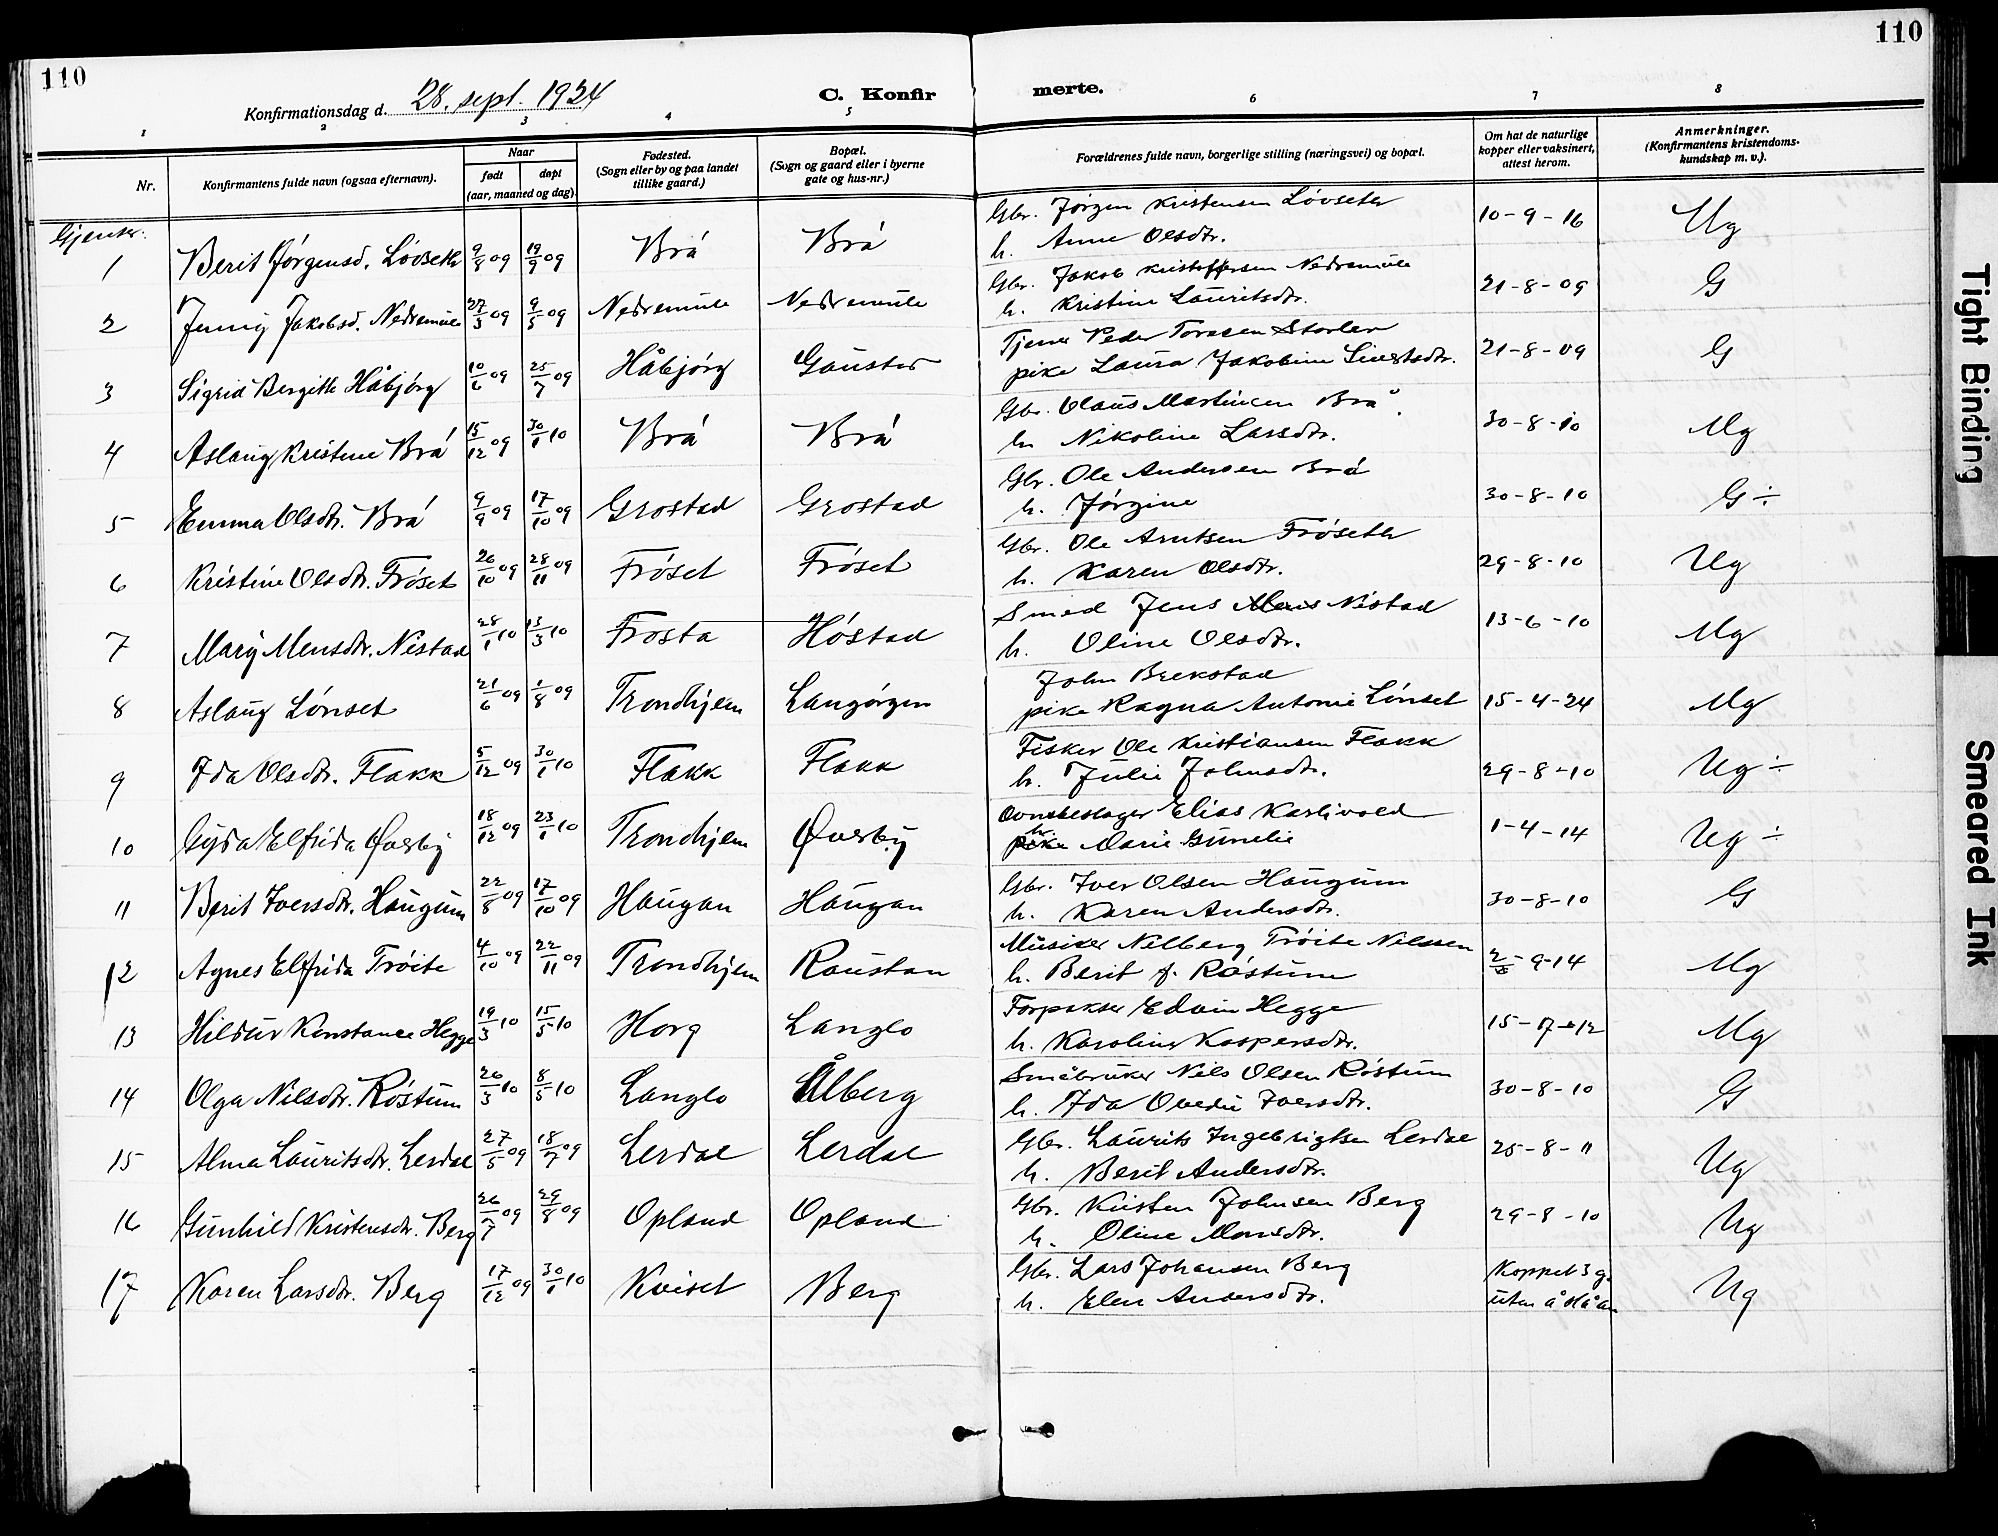 110
110
Konfirmationsdag d. 28. sept. 1924
C. Konfir
merte.
1 2 3 4 5 6 7 8
Nr.
Konfirmantens fulde navn (ogsaa efternavn).
Naar
født
døpt
(aar, maaned og dag).
Fødested.
(Sogn eller by og paa landet
tillike gaard.)
Bopæl.
(Sogn og gaard eller i byerne
gate og hus-nr.)
Forældrenes fulde navn, borgerlige stilling (næringsvei) og bopæl.
Om hat de naturlige
kopper eller vaksinert,
attest herom.
Anmerkninger.
(Konfirmantens kristendoms-
kundskap m. v.).
Gjenter.
1 Berit Jørgensd. Løvseth 9/8 09 19/9 09 Brå Brå Gbr. Jørgen Kristensen Løvseth 10-9-16 Mg
h. Anne Olsdtr.
2 Jenny Jakobsd. Nedremule 27/3 09 9/5 09 Nedremule Nedremule Gbr. Jakob Kristoffersen Nedremule 21-8-09 G
h. Kristine Lauritsdtr.
3 Sigrid Bergitte Håbjørg 10/6 09 25/7 09 Håbjørg Gaustad Tjener Peder Toresen Storler 21-8-09 G
pike Laura Jakobine Sivertsdtr.
4 Aslaug Kristine Brå 15/12 09 30/1 10 Brå Brå Gbr. Olaus Martinsen Brå. 30-8-10 Mg
h. Nikoline Larsdtr.
5 Emma Olsdtr. Brå 9/9 09 17/10 09 Grostad Grostad Gbr. Ole Andersen Brå 30-8-10 G ÷
h. Jørgine
6 Kristine Olsdtr. Frøset 26/10 09 28/11 09 Frøset Frøset Gbr. Ole Arntsen Frøseth 29-8-10 Ug
h. Karen Olsdtr.
7 Mary Mensdtr. Nistad 28/1 10 13/3 10 Frosta Høstad Smed Jens Mens Nistad 13-6-10 Mg
h. Oline Olsdtr.
8 Aslaug Lønset 21/6 09 1/8 09 Trondhjem Langørgen John Brekstad 15-4-24 Mg
pike Ragna Antonie Lønset
9 Ida Olsdtr. Flakk 5/12 09 30/1 10 Flakk Flakk Fisker Ole Kristiansen Flakk 29-8-10 Ug ÷
h. Julie Johnsdtr.
10 Gyda Elfrida Øverby 18/12 09 23/1 10 Trondhjem Øverby Ovnsbeslager Elias Karlivold 1-4-14 Ug ÷
h. pike Marie Gunelie
11 Berit Iversdtr. Haugum 22/8 09 17/10 09 Haugan Haugan Gbr. Iver Olsen Haugum 30-8-10 G
h. Karen Andersdtr.
12 Agnes Elfrida Trøite 4/10 09 22/11 09 Trondhjem Raustan Musiker Nilberg Trøite Nilssen 9-14 Mg
h. Berit f. Røstum
13 Hildur Konstance Hegge 19/3 10 15/5 10 Horg Langlo Forpakter Edvin Hegge 15-7-12 Mg
h. Karoline Kaspersdtr.
14 Olga Nilsdtr. Røstum 26/3 10 8/5 10 Langlo Ålberg Småbruker Nils Olsen Røstum 30-8-10 G
h. Ida Ovedie Iversdtr.
15 Alma Lauritsdtr. Lerdal 27/5 09 18/7 09 Lerdal Lerdal Gbr. Laurits Ingebrigtsen Lerdal 25-8-11 Ug
h. Berit Andersdtr.
16 Gunhild Kristensdtr. Berg 26/7 09 29/8 09 Opland Opland Gbr. Kristen Johnsen Berg 29-8-10 Ug
h. Oline Monsdtr.
17 Karen Larsdtr. Berg 17/12 09 30/1 10 Kviset Berg Gbr. Lars Johansen Berg Koppet 3 g.
h. Elen Andersdtr. uten å slå an Ug
Tight Binding
Smeared Ink